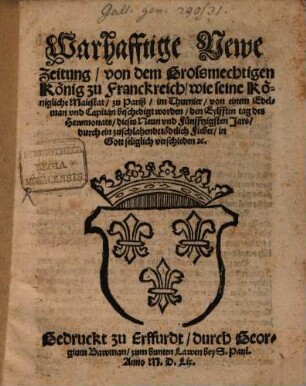 Gall. gen. 290/31.
Warhafftige Newe
Zeitung / von dem Grosmechtigen
König zu Franckreich / wie seine Kö-
nigliche Maiestat / zu Pariß / im Thurnier / von einem Edel-
man vnd Capitan beschedigt worden / den Eylfften tag des
Hewmonats / dieses Neun vnd Fünfftzigsten Jars /
durch ein zuschlahend tödtlich Fieber / in
Gott seliglich verschieden ꝛc.
BIBLIOTHECA
REGIA
MONACENSIS.
Gedruckt zu Erffurdt / durch Geor-
gium Bawman / zum bunten Lawen bey S. Paul.
Anno M. D. Lix.